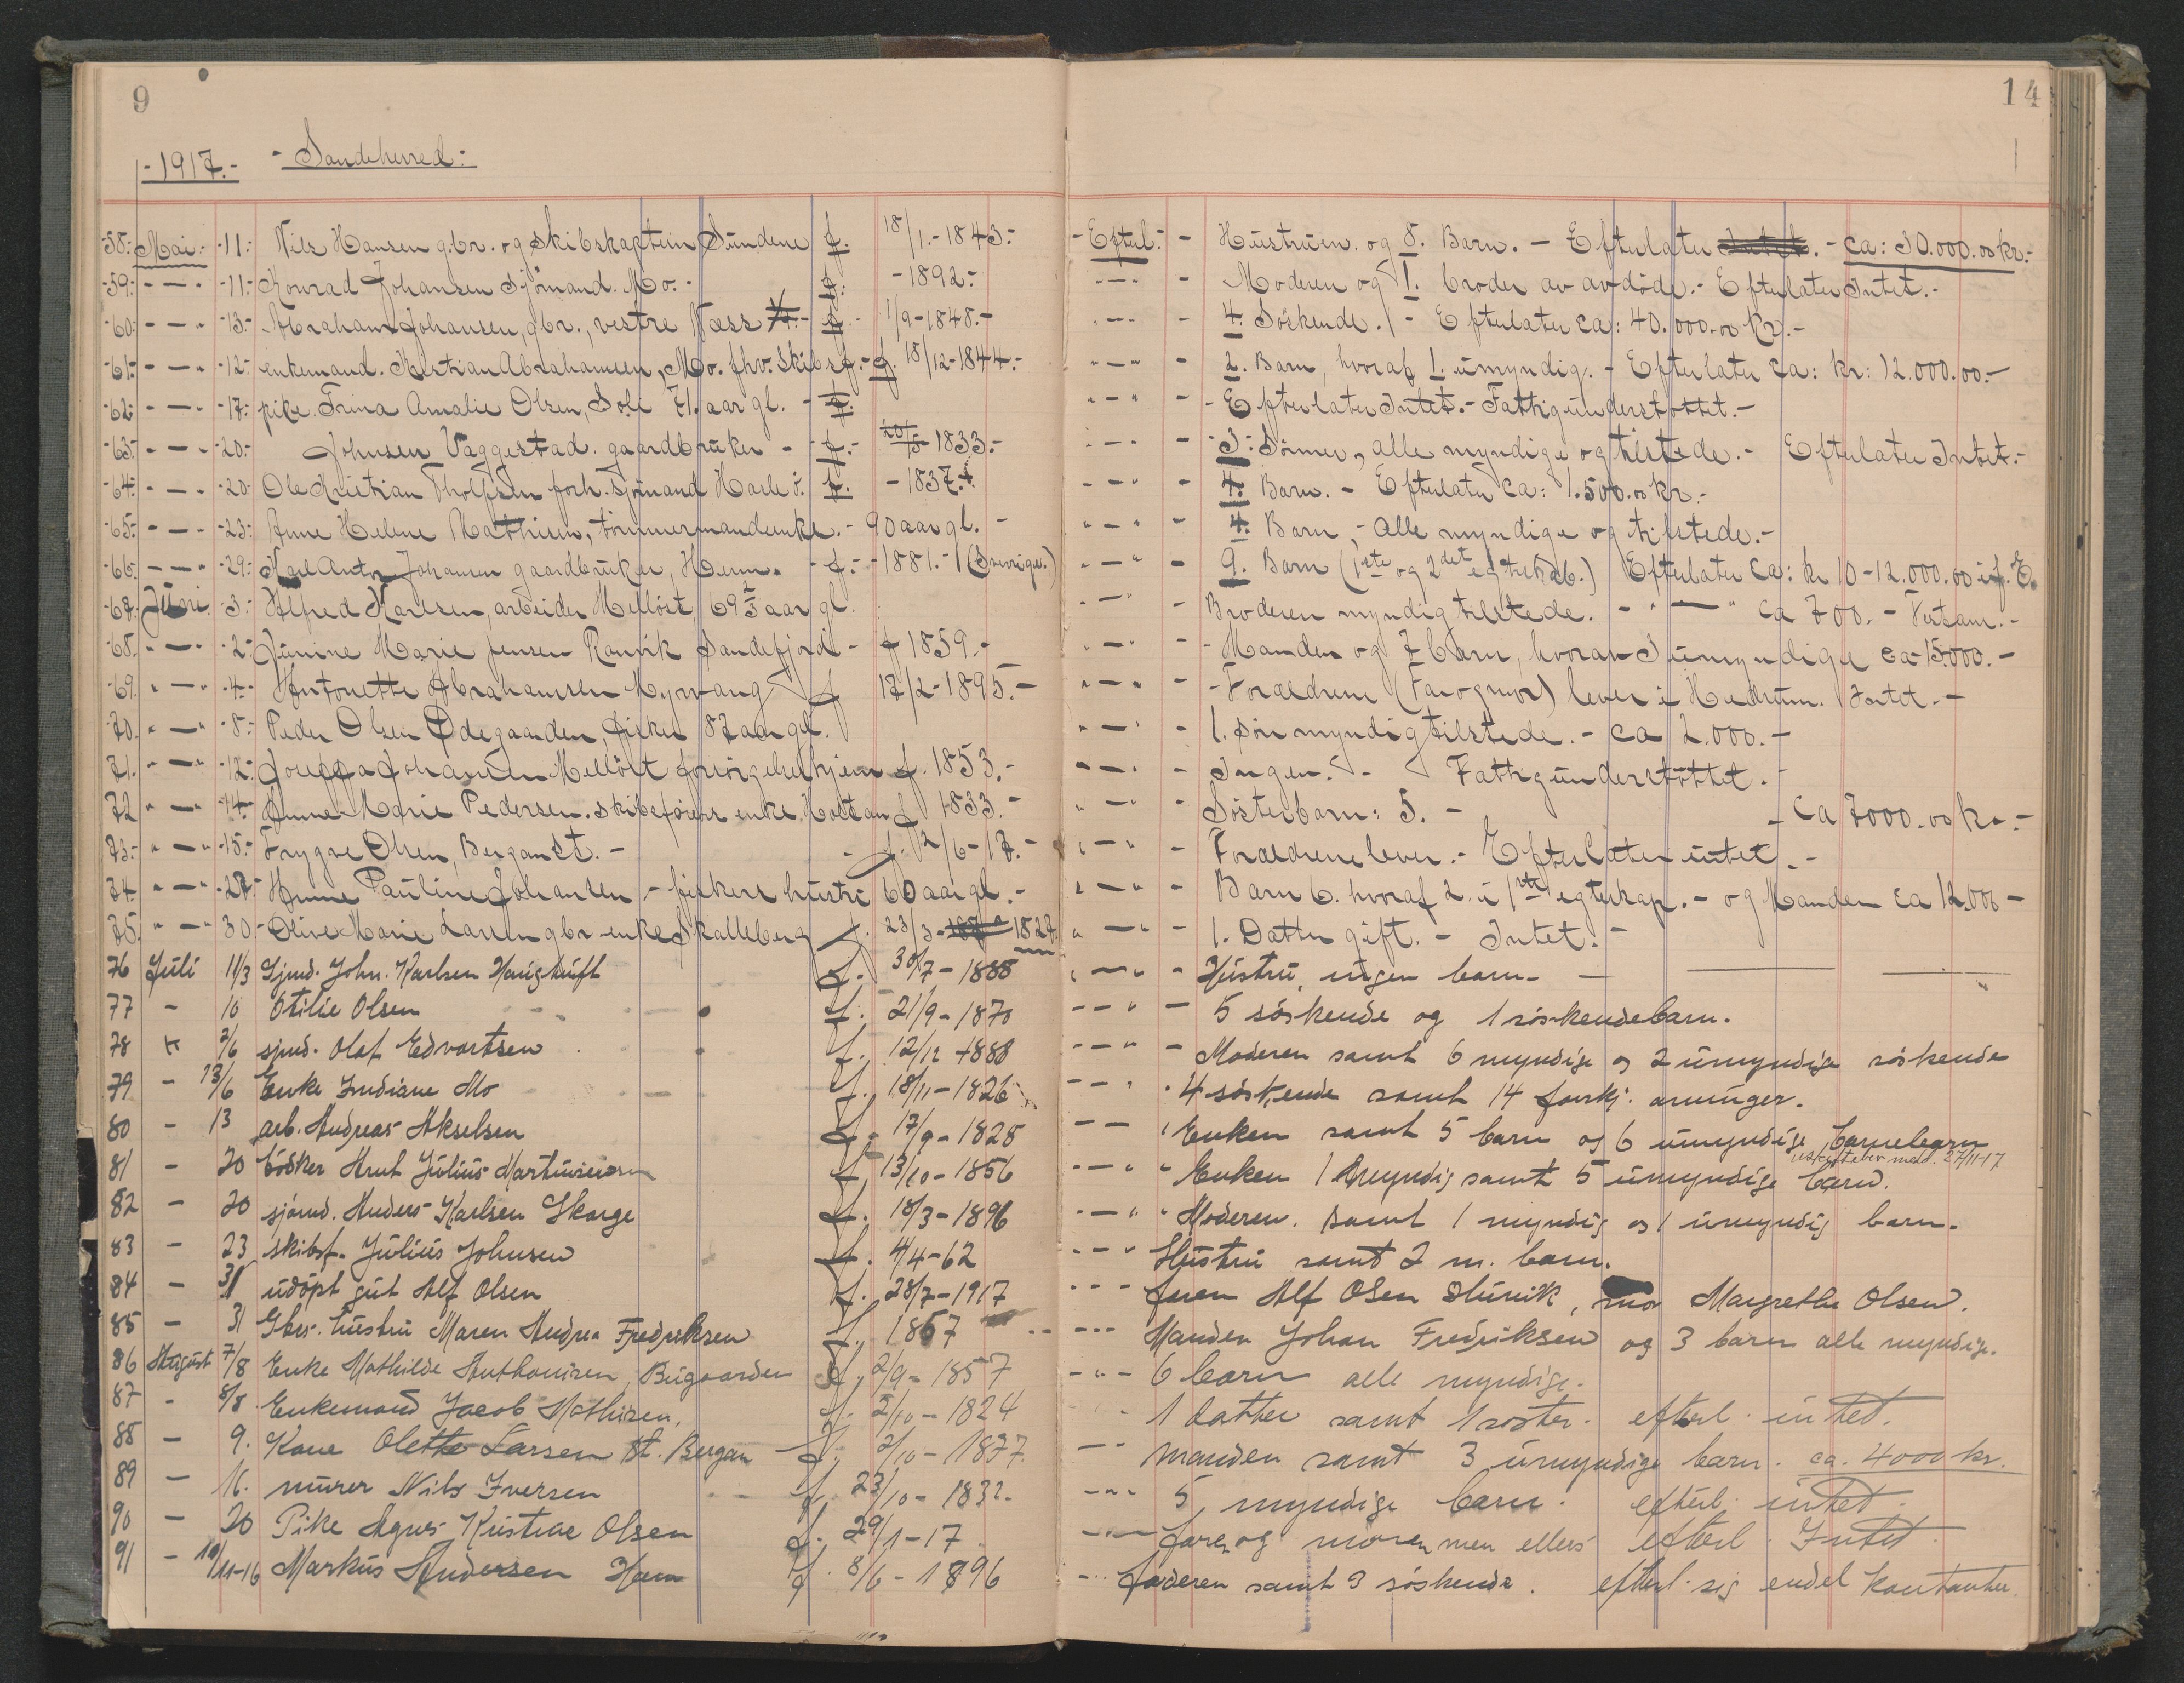 9
14
- 1917. - - Sandeherred: -
-58- Mai - 11 - Nils Hansen gbr. og Skibskaptein Sundene f. 18/1. - 1843. - - Efterl. - - Hustruen og 8. Barn. - Efterlater Intet. - ca: 30.000.00 kr. -
-59- - - " - 11 - Konrad Johansen Sjömand. Mo. - f. - 1892. - " - " - Moderen og 1. broder av avdöde. - Efterlater Intet. -
-60- - - " - 13 - Abraham Johansen, gbr., vestre Næss f. - 1/9 - 1848. - " - " - 4. Söskende. - Efterlater ca: 40.000.00 Kr. -
-61- - - " - 12 - enkemand. Kristian Abrahamsen, Mo. fhv. Skibsf. - f. 18/12 - 1844. - " - " - 2. Barn, hvoraf 1. umyndig. - Efterlater ca: kr: 12.000.00. -
-62- - - " - 17 - pike. Trina Amalie Olsen, Soli 71. aar gl. - f. " - " - Efterlater Intet. - Fattigunderstöttet. -
-63- - - " - 20 - Johnsen Vaggestad. gaardbruker - f. - 20/5 - 1833. - " - " - 3. Sönner, alle myndige og tilstede. - Efterlater Intet. -
-64- - - " - 20 Ole Kristian Tholfsen forh. sjömand Hasle ö. f. - 1837. " - " - 4. Barn. - Efterlater ca: 1.500.00 Kr. -
-65- - - " - 23 - Anne Helene Mathisen, tömmermandenke. - 90 aar gl. - " - " - 4. Barn, - alle myndige og tilstede. -
-66- - - " - 29 - Karl Anton Johansen gaardbruker, Hem. - f. - 1881. - (Sverige.) " - " - 9. Barn (1ste og 2det egteskab.) Efterlater ca: kr 10 - 12.000.00 if. E.
-67. Juni. - 3 - Alfred Karlsen, arbeider Mellöst, 69 2/3 aar gl. " - " - Broderen myndig tilstede. - " - " ca 700. -
-68. " - " - 2 - Junine Marie Jensen Ranvik Sandefjord - f 1859. - " - " - Manden og 7 barn, hvorav 3 umyndige ca 15.000. -
-69. " - " - 4 - Antonette Abrahamsen Myrvang f 17/2 - 1895. - " - " - Forældrene (Far og mor) lever i Hedrum. Intet. -
70. " - " - 8 - Peder Olsen Ödegaarden, fisker 87 aar gl. " - " - 1. Sön myndig tilstede. - ca 2.000. -
71. " - " - 12 - Johansen Mellöst forsörgelseshjem f. 1853. - " - " - Ingen. - Fattigunderstöttet. -
72 " - " - 14 - Anne Marie Pedersen. skibsförers enke, Holtan f 1833. - " - " - Sösterbarn: 5. - - ca 7000.00 kr. -
73 - " - " - 15 - Trygve Olsen, Bergan St. - f. 12/6 - 17. - " - " - Forældrene lever. - Efterlater intet. -
74 " - " - 27 - Anne Pauline Johansen - fiskers hustru 60 aar gl. - " - " - Barn 6. hvoraf 2. i 1ste egteskap. - og Manden ca 12.000 -
75. " - " - 30 - Olive Marie Larsen gbr enke Skalleberg f. 23/3 - 1827. " - " - 1. Datter gift. - Intet. -
76 Juli 11/3 Sjmd. John. Karlsen Haugtuft f. 30/7 - 1888 " - " - Hustru, ingen barn. -
77 - 10 Otilie Olsen f. 21/9 - 1870 - - " - 5 söskende og 1 söskendebarn.
78 2/6 sjmd. Olaf Edvartsen f. 12/12 1888 - - " - Moderen samt 6 myndige og 2 umyndige söskende
79 - 13/6 Enke Indiane Mo f. 18/11 - 1826 - - " 4 söskende samt 14 forskj. arvinger.
80 - 13 arb. Andreas Akselsen f. 17/9 - 1828 - - Enken samt 5 barn og 6 umyndige barnebarn
81 - 20 Bödker Arnt Julius Martinsen f. 13/10 - 1856 - - " Enken 1 myndig samt 5 umyndige barn.
27/11-17
82 - 20 sjömd. Anders Karlsen Skarge f. 18/3 - 1896 - - " Moderen. samt 1 myndig og 1 umyndig barn.
83 - 23 skibsf. Julius Johnsen f. 4/4 - 62 - - " Hustru samt 2 m. barn.
84 - 31 udöpt gut Alf Olsen f. 28/7 - 1917 - - - faren Alf Olsen Slurvik, mor Margrethe Olsen.
85 - 31 Gbr. hustru Maren Andrea Fredriksen f. 1867 - - - Manden Johan Fredriksen og 3 barn alle myndige.
86 August 7/8 Enke Mathilde Anthonisen, Bugaarden f. 2/9 - 1857 - " - 6 barn alle myndige.
87 - 8/8 Enkemand Jacob Mathisen. f. 2/10 - 1824 1 datter samt 1 söster. efterl. intet.
88 - 9. Kone Olette Larsen St. Bergan f. 2/10 - 1877. - - manden samt 3 umyndige barn. ca. 4000 kr.
89 - 16. murer Nils Iversen f. 23/10 - 1832. - - - 5 myndige barn. efterl. intet.
90 - 20 Pike Agnes Kristine Olsen f. 29/1 - 17 - - - faren og moren men ellers efterl. Intet.
91 - 19/11-16 Markus Andersen Ham f. 8/6 - 1896 - - - faderen samt 3 söskende. efterl. sig endel kontanter.